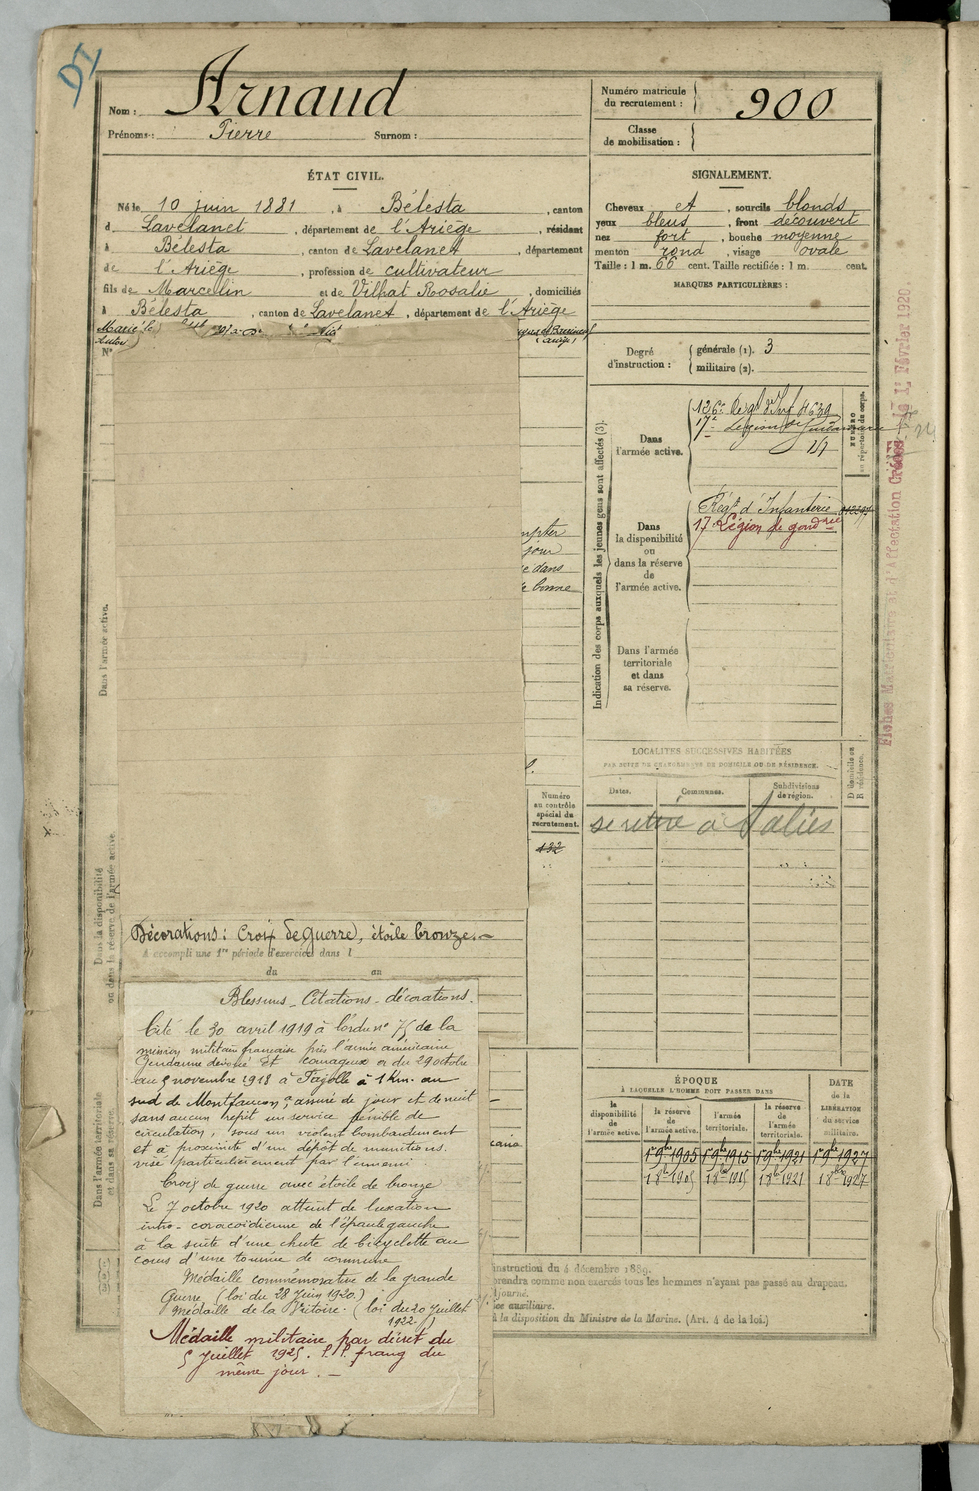 Nom : Arnaud
Prénoms : Pierre Surnom :
Numéro matricule
du recrutement : 900
Classe
de mobilisation :
ÉTAT CIVIL.
Né le 10 juin 1881, à Bélesta, canton
d Lavelanet, département de l'Ariège, résidant
à Bélesta, canton de Lavelanet, département
de l'Ariège, profession de cultivateur
fils de Marcelin et de Vilhat Rosalie, domiciliés
à Bélesta, canton de Lavelanet, département de l'Ariège
Marié le
SIGNALEMENT.
Cheveux et, sourcils blonds
yeux bleus, front découvert
nez fort, bouche moyenne
menton rond, visage ovale
Taille : 1 m. 66 cent. Taille rectifiée : 1 m. cent.
MARQUES PARTICULIÈRES :
Degré
d'instruction :
générale (1). 3
militaire (2).
Indication des corps auxquels les jeunes gens sont affectés (3).
NUMÉRO
au répertoire du corps.
Dans
l'armée active.
126e Regt d'Inf 4639
17e Légion de Gendarmerie
Dans
la disponibilité
ou
dans la réserve
de
l'armée active.
Régt d'Infanterie
17 Légion de gendrie
Dans l'armée
territoriale
et dans
sa réserve.
Fiches Matriculaire et d'Affectation Créées le 1er Février 1920.
Dans l'armée active.
mpter
jour
e dans
e bonne
LOCALITÉS SUCCESSIVES HABITÉES
PAR SUITE DE CHANGEMENTS DE DOMICILE OU DE RÉSIDENCE.
Dates. Communes. Subdivisions
de région. D domicile ou
R résidence.
se retire à Salies
Numéro
au contrôle
spécial du
recrutement.
132
Dans la disponibilité
ou dans la réserve de l'armée active.
Décorations : Croix de guerre, étoile bronze.
A accompli une 1re période d'exercice dans l
du au
Blessures - Citations - décorations.
Cité le 30 avril 1919 à l'ordre n° 75 de la
mission militaire française près l'armée américaine
Gendarme dévoué et courageux a du 29 octobre
au 5 novembre 1918 à Fayolle à 1 Km. au
sud de Montfaucon, assuré de jour et de nuit
sans aucun répit un service pénible de
circulation, sous un violent bombardement
et à proximité d'un dépôt de munitions
visé particulièrement par l'ennemi
Croix de guerre avec étoile de bronze
Le 7 octobre 1920 atteint de luxation
intra-coracoïdienne de l'épaule gauche
à la suite d'une chute de bicyclette au
cours d'une tournée de commune
Médaille commémorative de la grande
Guerre (loi du 28 Juin 1920.)
Médaille de la Victoire. (loi du 20 juillet
1922.)
Médaille militaire par décret du
5 juillet 1925. rang du
même jour. -
Dans l'armée territoriale
et dans sa réserve.
ÉPOQUE
À LAQUELLE L'HOMME DOIT PASSER DANS
DATE
DE LA
LIBÉRATION
du service
militaire.
la
disponibilité
de
l'armée active.
la réserve
de
l'armée active.
l'armée
territoriale.
la réserve
de
l'armée
territoriale.
1 9bre 1905 1 9bre 1915 1 9bre 1921 1 9bre 1927
1 8bre 1905 1 8bre 1915 1 8bre 1921 1 8bre 1927
instruction du 4 décembre 1889.
prendra comme non exercés tous les hommes n'ayant pas passé au drapeau.
Ajourné.
ice auxiliaire.
à la disposition du Ministre de la Marine. (Art. 4 de la loi.)